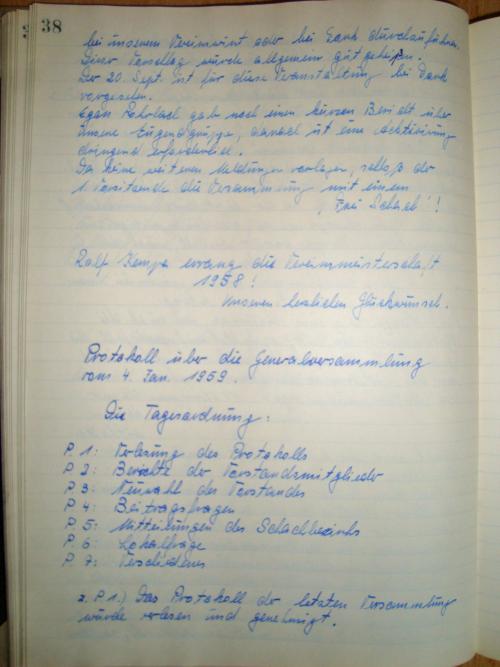 38
bei unserem Vereinswirt oder bei Dank durchzuführen.
Dieser Vorschlag wurde allgemein gut geheißen.
Der 20. Sept. ist für diese Veranstaltung bei Dank
vorgesehen.
Egon gab noch einen kurzen Bericht über
unsere Jugendgruppe, danach ist eine Aktivierung
dringend erforderlich.
Da keine weiteren Meldungen vorlagen, schloß der
1. Vorsitzende die Versammlung mit einem
„Frei Schach“!
Ralf Kempe errang die Vereinsmeisterschaft
1958!
Unseren herzlichen Glückwunsch.
Protokoll über die Generalversammlung
vom 4. Jan. 1959.
Die Tagesordnung:
P. 1: Verlesung des Protokolls
P. 2: Berichte der Vorstandsmitglieder
P. 3: Neuwahl des Vorstandes
P. 4: Beitragsfragen
P. 5: Mitteilungen des Schachbezirks
P. 6: Lokalfrage
P. 7: Verschiedenes
z. P. 1.) Das Protokoll der letzten Versammlung
wurde verlesen und genehmigt.